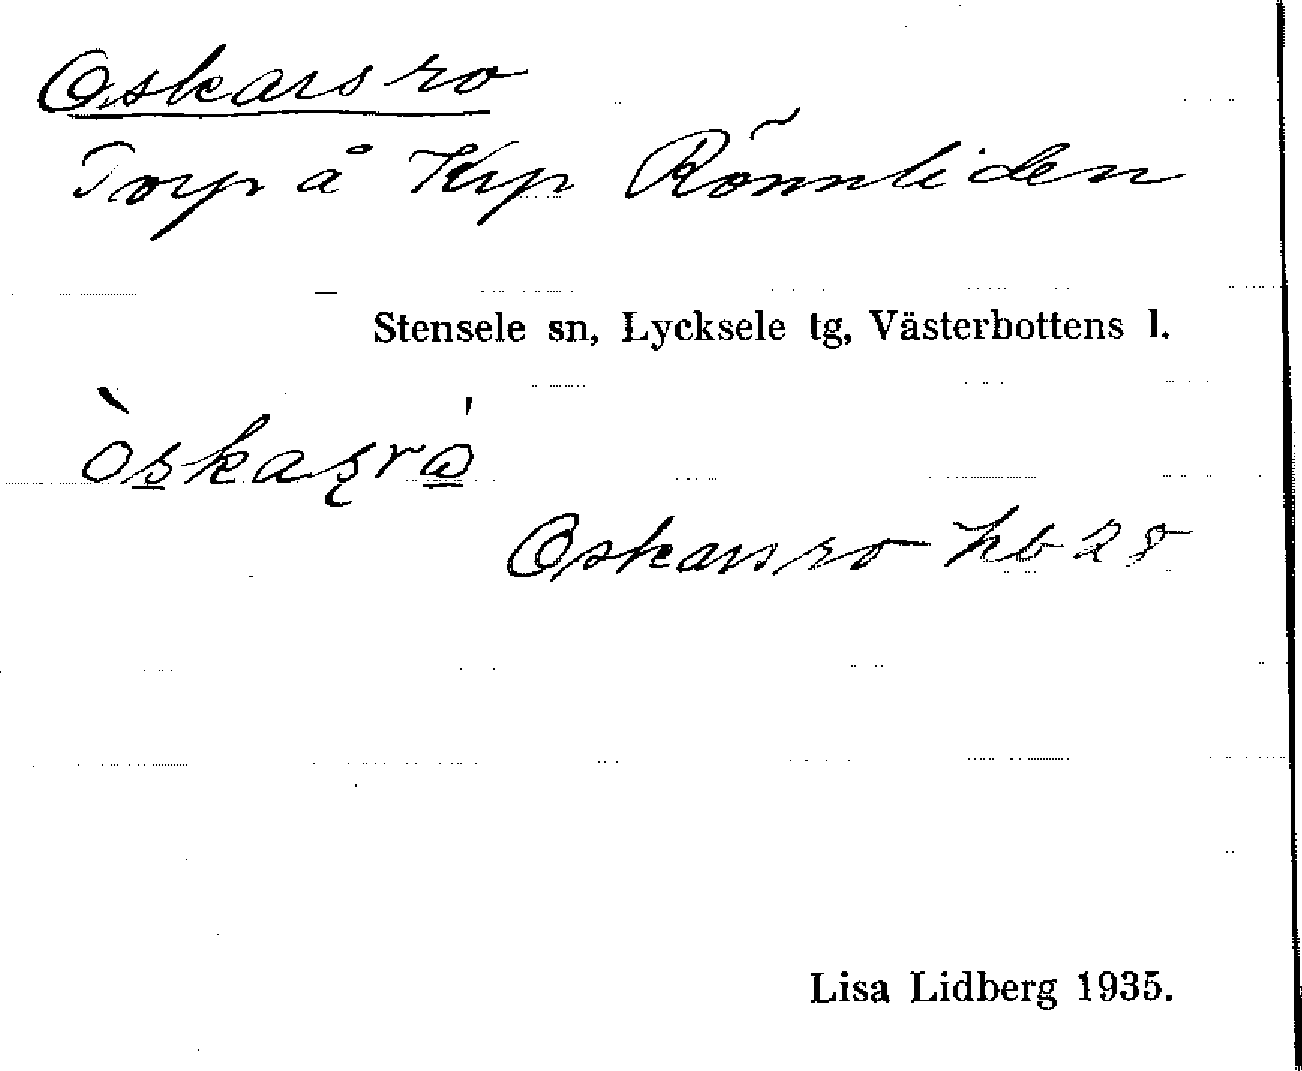 Oskarsro
Torp å Krp Rönnliden
Stensele sn, Lycksele tg, Västerbottens l.
òskaʂrọ́
Oskarsro hb 28
Lisa Lidberg 1935.